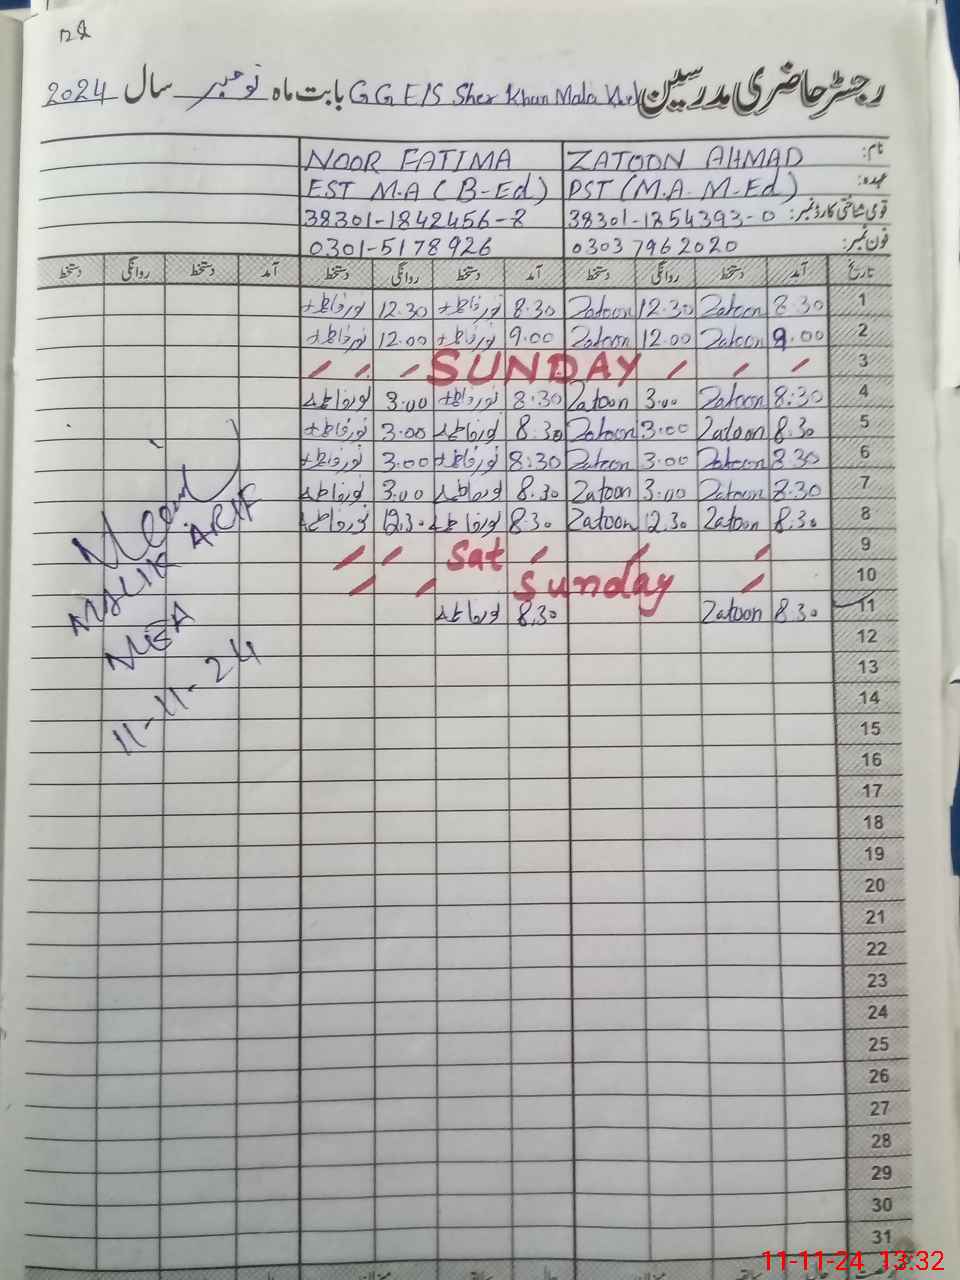 رجسٹر حاضری مدرسین G G E/S Sher Khan Mala Khel بابت ماہ نومبر سال 2024
نام: ZATOON AHMAD NOOR FATIMA
عہدہ: PST (M.A. M-Ed) EST M.A ( B-Ed)
قومی شناختی کارڈ نمبر: 38301-1354393-0 38301-1842456-8
فون نمبر: 03037962020 0301-5178926
تاریخ آمد دستخط روانگی دستخط آمد دستخط روانگی دستخط آمد دستخط روانگی دستخط
1 8.30 Zatoon 12.30 Zatoon 8.30 نور فاطمہ 12.30 نور فاطمہ
2 9.00 Zatoon 12.00 Zatoon 9.00 نور فاطمہ 12.00 نور فاطمہ
3 SUNDAY
4 8:30 Zatoon 3.00 Zatoon 8.30 نور فاطمہ 3.00 نور فاطمہ
5 8.30 Zatoon 3.00 Zatoon 8.30 نور فاطمہ 3.00 نور فاطمہ
6 8.30 Zatoon 3.00 Zatoon 8:30 نور فاطمہ 3.00 نور فاطمہ
7 8.30 Zatoon 3.00 Zatoon 8.30 نور فاطمہ 3.00 نور فاطمہ
8 8.30 Zatoon 12.30 Zatoon 8.30 نور فاطمہ 12.30 نور فاطمہ
9 Sat
10 Sunday
11 8.30 Zatoon 8.30 نور فاطمہ
12
13
14
15
16
17
18
19
20
21
22
23
24
25
26
27
28
29
30
31
MALIK ARIF
MEA
11-11-24
11-11-24 13:32